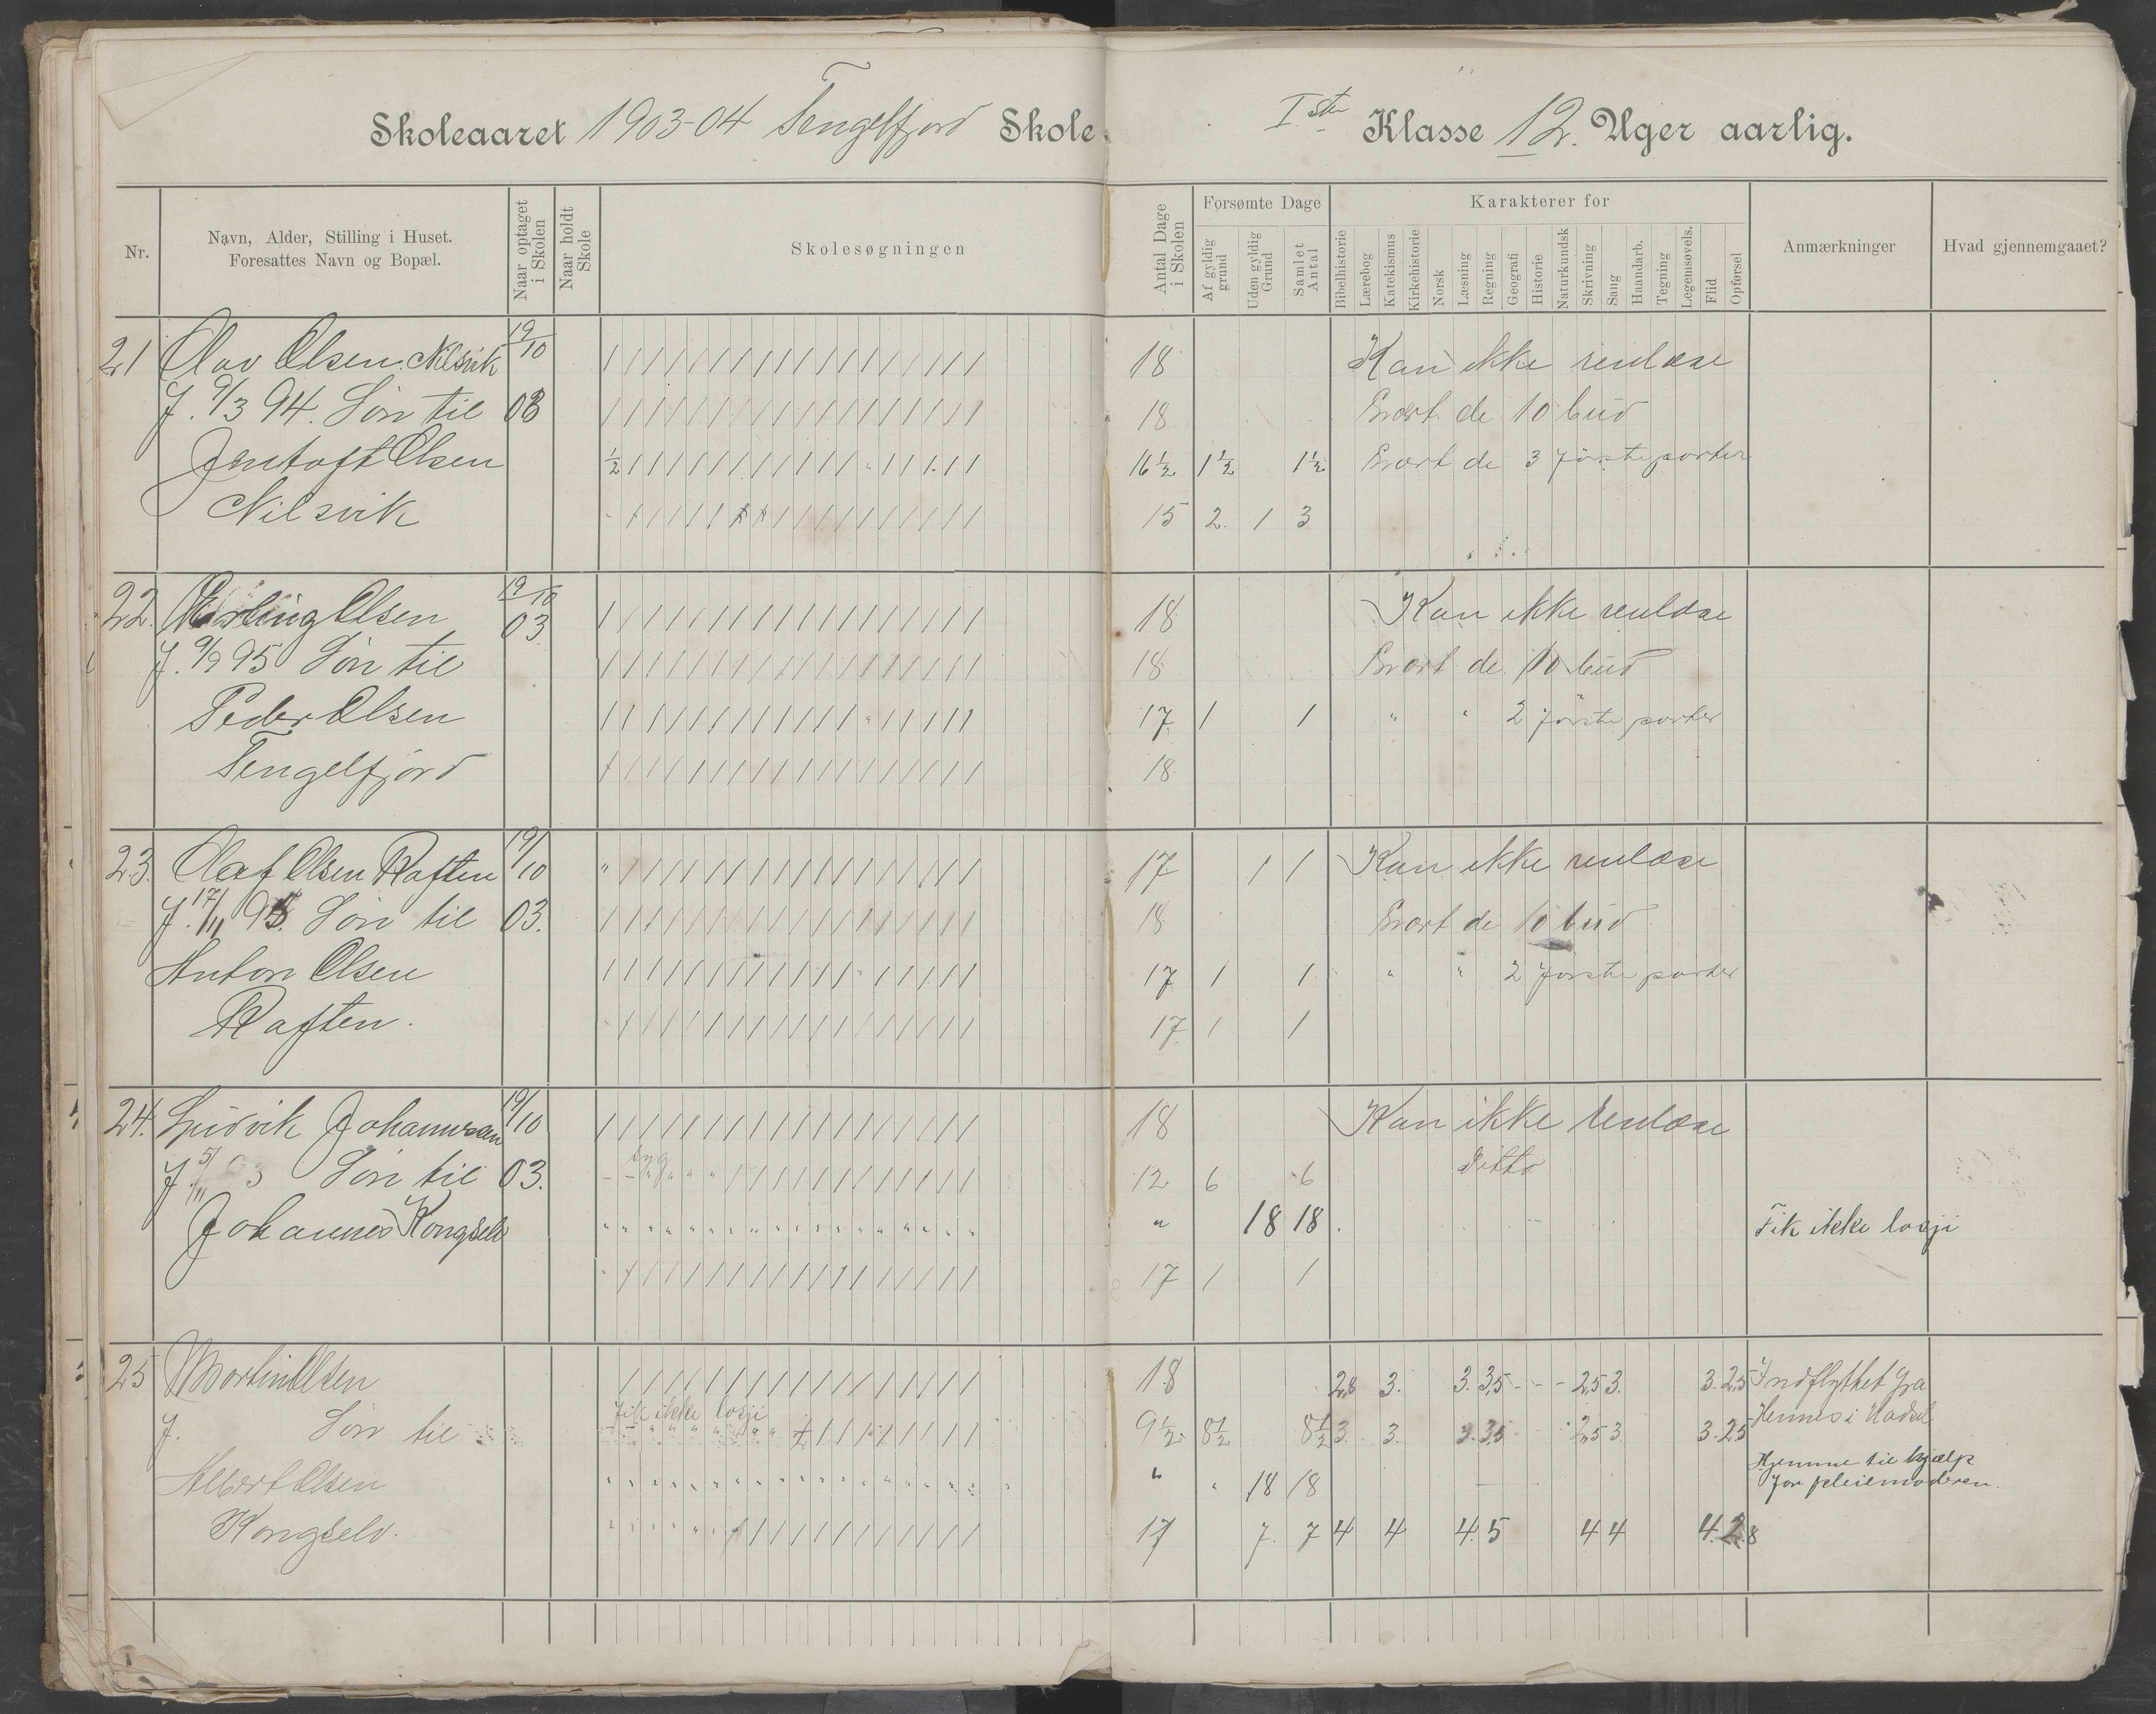 Skoleaaret 1903-04 Tengelfjord Skole. Iste Klasse 12. Uger aarlig.
Nr.
Navn, Alder, Stilling i Huset.
Foresattes Navn og Bopæl.
Naar optaget i Skolen
Naar holdt Skole
Skolesøgningen
Antal Dage i Skolen
Forsømte Dage
Af gyldig grund
Uden gyldig Grund
Samlet Antal
Karakterer for
Bibelhistorie
Lærebog
Katekismus
Kirkehistorie
Norsk
Læsning
Regning
Geografi
Historie
Naturkundsk
Skrivning
Sang
Haandarb.
Tegning
Legemsøvels.
Flid
Opførsel
Anmærkninger
Hvad gjennemgaaet?
21 Olav Olsen Nilsvik 19/10 18 Kan ikke renlæse
f. 9/3 94. Søn til 03 18 Lært de 10 bud
Jentoft Olsen 1/2 16 1/2 1 1/2 1 1/2 Lært de 3 første parter
Nilsvik 15 2. 1 3
22. Erling Olsen 19/10 03 18 Kan ikke renlæse
f. 9/9 95 Søn til 18 Lært de 10 bud
Peder Olsen 17 1 1 " " 2 første parter
Tengelfjord 18
23. Olaf Olsen Raften 19/10 17 1 1 Kan ikke renlæse
f. 17/11 95. Søn til 03. 18 Lært de 10 bud
Anton Olsen 17 1 1 " " 2 første parter
Raften. 17 1 1
24. Ludvik Johannesen 19/10 18 Kan ikke renlæse
f. 5/11 3 Søn til 03. syg 12 6 6 Ditto
Johannes Kongselv " 18 18 Fik ikke losji
17 1 1
25 Martin Olsen 18 2,8 3. 3. 3,5 - - - 2,5 3. 3. 2,5 Indflyttet fra
f. Søn til Fik ikke losji 9 1/2 8 1/2 8 1/2 3. 3. 3. 3,5 2,5 3 3. 2,5 Hennes i Hadsel
Albert Olsen " " 18 18 Hjemme til hjælp
for pleiemoderen.
Kongselv. 17 7. 7 4 4 4. 5 4 4 4. 2.8